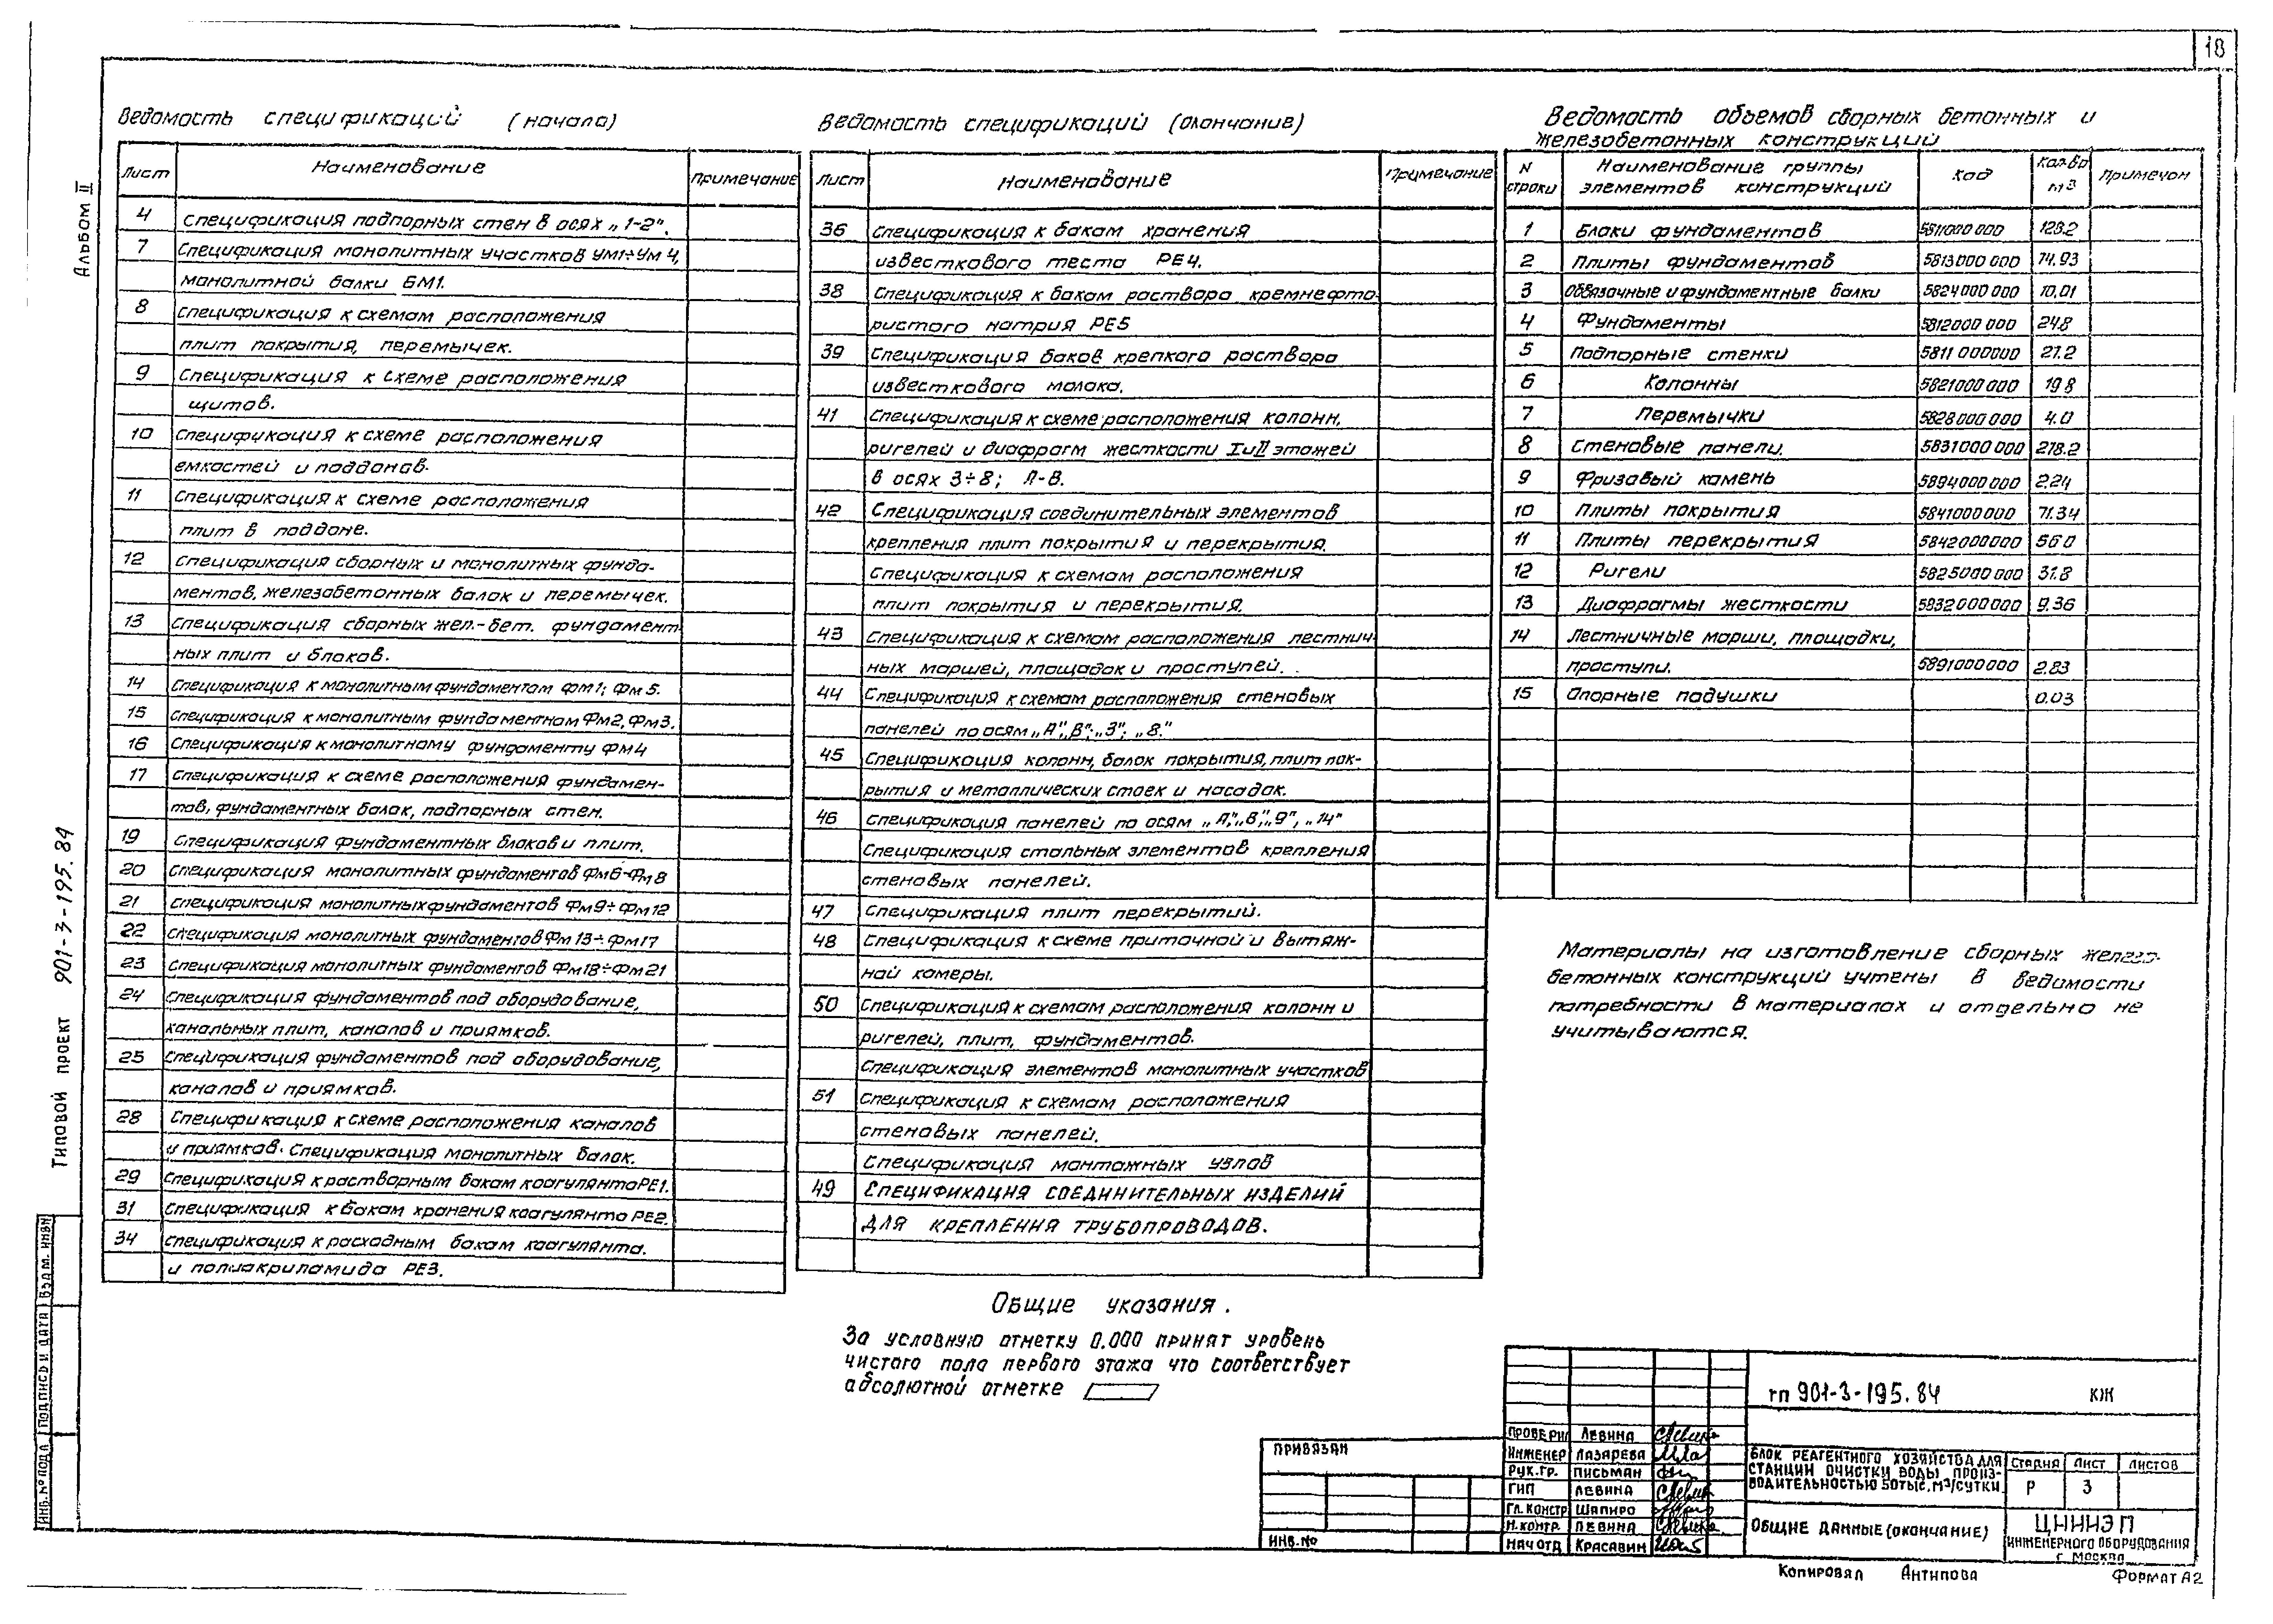 18
Альбом II
Типовой проект 901-3-195.84
Ведомость спецификаций (начало)
Лист Наименование Примечание
4 Спецификация подпорных стен в осях „1-2".
7 Спецификация монолитных участков УМ1÷УМ4,
монолитной балки БМ1.
8 Спецификация к схемам расположения
плит покрытия, перемычек.
9 Спецификация к схеме расположения
щитов.
10 Спецификация к схеме расположения
емкостей и поддонов.
11 Спецификация к схеме расположения
плит в поддоне.
12 Спецификация сборных и монолитных фунда-
ментов, железобетонных балок и перемычек.
13 Спецификация сборных жел.-бет. фундамент
ных плит и блоков.
14 Спецификация к монолитным фундаментам Фм1; Фм5.
15 Спецификация к монолитным фундаментам Фм2, Фм3.
16 Спецификация к монолитному фундаменту Фм4
17 Спецификация к схеме расположения фундамен-
тов, фундаментных балок, подпорных стен.
19 Спецификация фундаментных блоков и плит.
20 Спецификация монолитных фундаментов Фм6-Фм8
21 Спецификация монолитных фундаментов Фм9÷Фм12
22 Спецификация монолитных фундаментов Фм13÷Фм17
23 Спецификация монолитных фундаментов Фм18÷Фм21
24 Спецификация фундаментов под оборудование,
канальных плит, каналов и приямков.
25 Спецификация фундаментов под оборудование,
каналов и приямков.
28 Спецификация к схеме расположения каналов
и приямков. Спецификация монолитных балок.
29 Спецификация к растворным бакам коагулянта РЕ1.
31 Спецификация к бакам хранения коагулянта РЕ2.
34 Спецификация к расходным бакам коагулянта.
и полиакриламида РЕ3.
Ведомость спецификаций (окончание)
Лист Наименование Примечание
36 Спецификация к бакам хранения
известкового теста РЕ4.
38 Спецификация к бакам раствора кремнефто-
ристого натрия РЕ5
39 Спецификация баков крепкого раствора
известкового молока.
41 Спецификация к схеме расположения колонн,
ригелей и диафрагм жесткости I и II этажей
в осях 3÷8; А-В.
42 Спецификация соединительных элементов
крепления плит покрытия и перекрытия.
Спецификация к схемам расположения
плит покрытия и перекрытия.
43 Спецификация к схемам расположения лестнич-
ных маршей, площадок и проступей.
44 Спецификация к схемам расположения стеновых
панелей по осям „А", „В"; „3"; „8."
45 Спецификация колонн, балок покрытия, плит пок-
рытия и металлических стоек и насадок.
46 Спецификация панелей по осям „А", „В", „9", „14"
Спецификация стальных элементов крепления
стеновых панелей.
47 Спецификация плит перекрытий.
48 Спецификация к схеме приточной и вытяж-
ной камеры.
50 Спецификация к схемам расположения колонн и
ригелей, плит, фундаментов.
Спецификация элементов монолитных участков
51 Спецификация к схемам расположения
стеновых панелей.
Спецификация монтажных узлов
49 Спецификация соединительных изделий
для крепления трубопроводов.
Общие указания.
За условную отметку 0.000 принят уровень
чистого пола первого этажа что соответствует
абсолютной отметке
Ведомость объемов сборных бетонных и
железобетонных конструкций
N строки Наименование группы элементов конструкций Код Кол-во м3 Примечан
1 Блоки фундаментов 5811000 000 128.2
2 Плиты фундаментов 5813000 000 74.93
3 Обвязочные и фундаментные балки 5824000 000 10.01
4 Фундаменты 5812000 000 24.8
5 Подпорные стенки 5811 000000 27.2
6 Колонны 5821000 000 19.8
7 Перемычки 5828000 000 4.0
8 Стеновые панели. 5831000 000 278.2
9 Фризовый камень 5894000 000 2.24
10 Плиты покрытия 5841000 000 71.34
11 Плиты перекрытия 5842000000 56.0
12 Ригели 5825000 000 31.8
13 Диафрагмы жесткости 5832000000 9.36
14 Лестничные марши, площадки,
проступи. 5891000000 2.83
15 Опорные подушки 0.03
Материалы на изготовление сборных железо-
бетонных конструкций учтены в ведомости
потребности в материалах и отдельно не
учитываются.
ПРИВЯЗАН
ИНВ.№
ПРОВЕРИЛ ЛЕВИНА
ИНЖЕНЕР ЛАЗАРЕВА
РУК.ГР. ПИСЬМАН
ГИП ЛЕВИНА
ГЛ.КОНСТР ШАПИРО
Н.КОНТР. ЛЕВИНА
НАЧ ОТД КРАСАВИН
тп 901-3-195.84 КЖ
БЛОК РЕАГЕНТНОГО ХОЗЯЙСТВА ДЛЯ
СТАНЦИИ ОЧИСТКИ ВОДЫ ПРОИЗ-
ВОДИТЕЛЬНОСТЬЮ 50 ТЫС. М³/СУТКИ.
СТАДИЯ ЛИСТ ЛИСТОВ
Р 3
ОБЩИЕ ДАННЫЕ (ОКОНЧАНИЕ)
ЦНИИЭП
ИНЖЕНЕРНОГО ОБОРУДОВАНИЯ
г. МОСКВА
Копировал Антипова
Формат А2
ИНВ.№ ПОДЛ ПОДПИСЬ И ДАТА ВЗАМ. ИНВ№